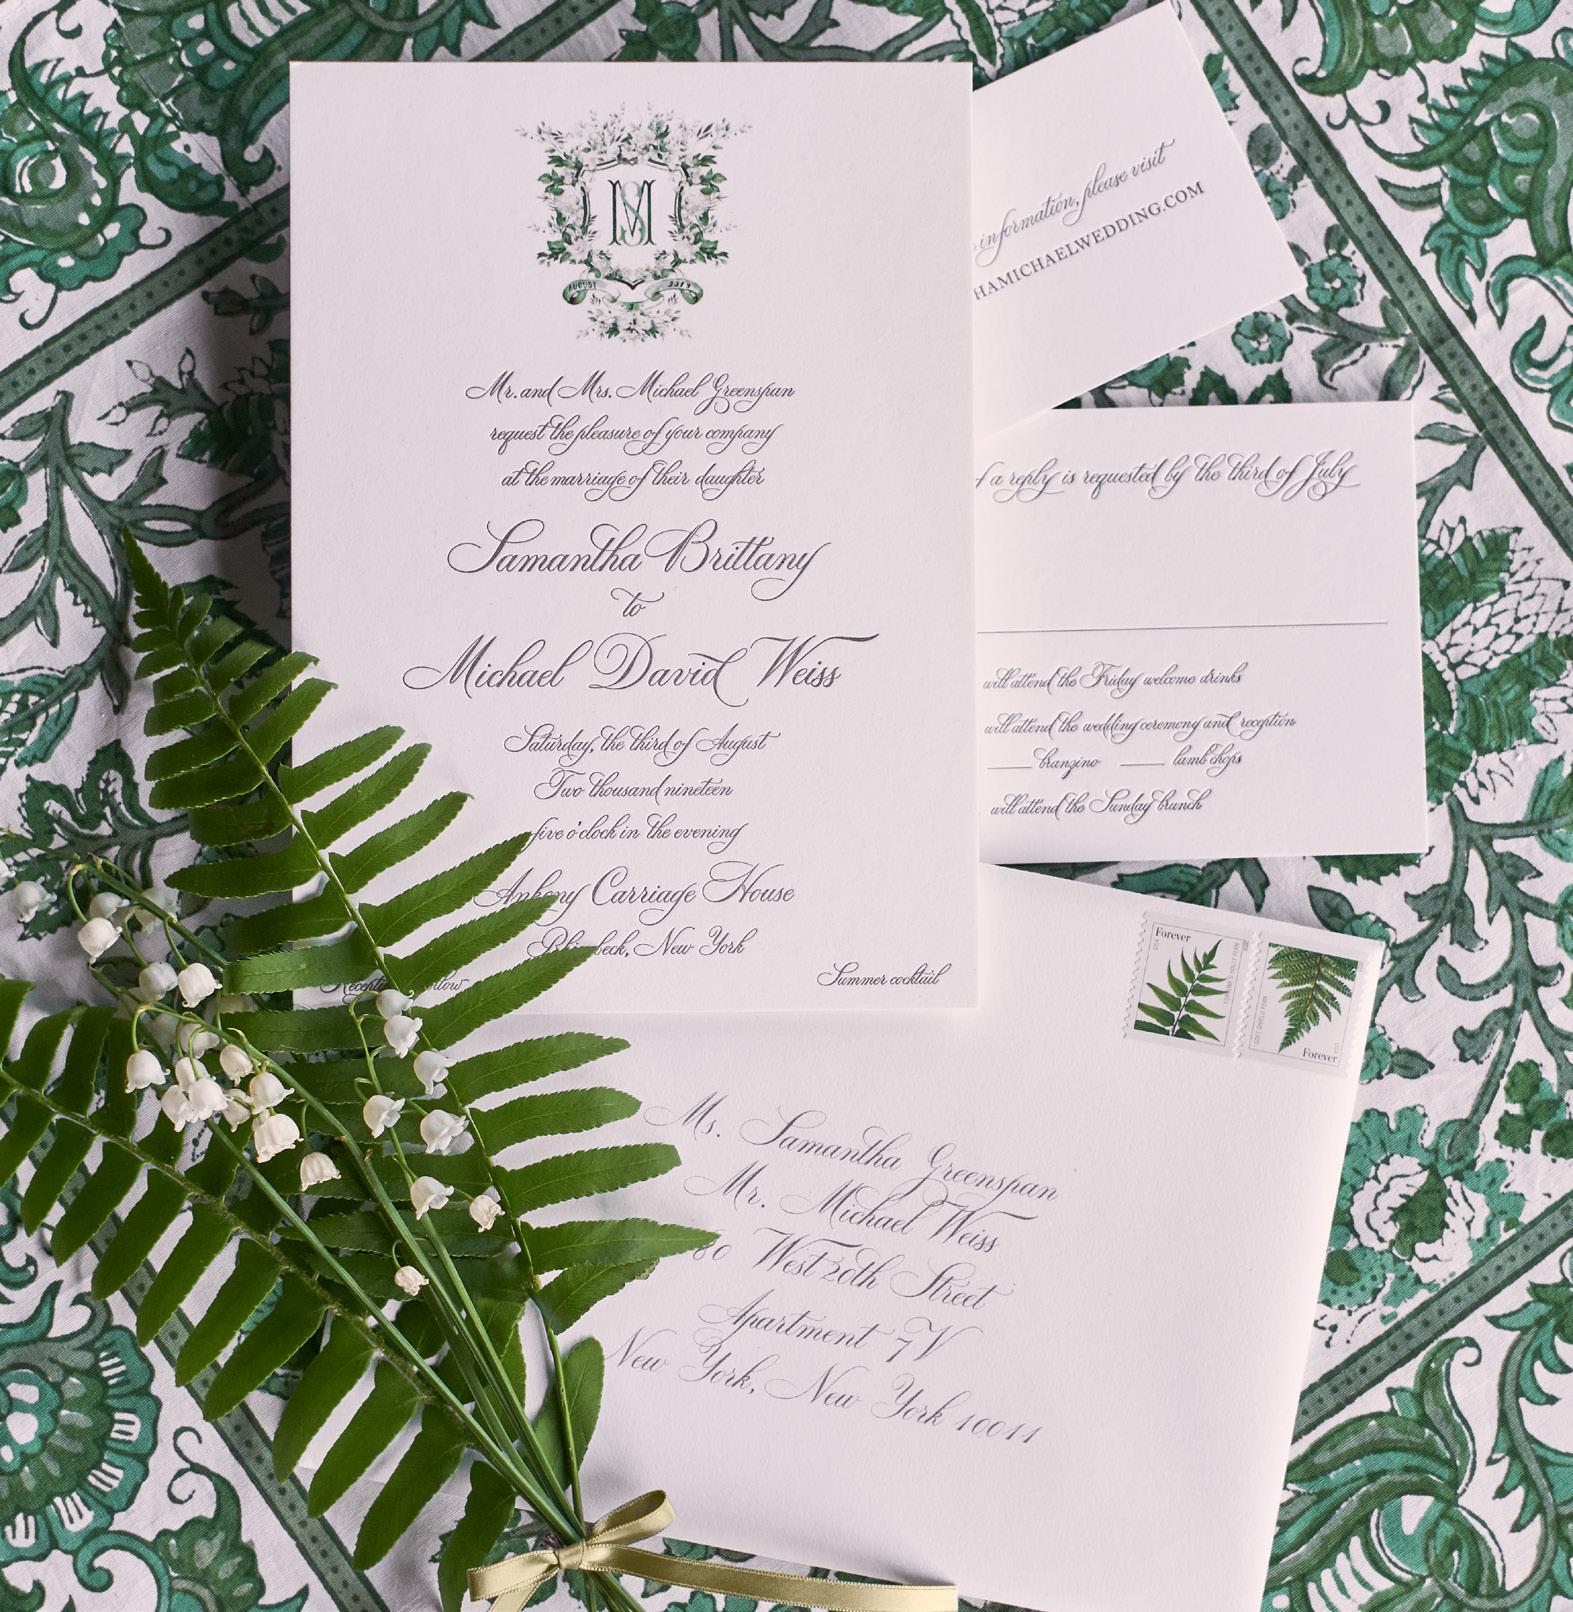 MS
AUGUST 3 2019
Mr. and Mrs. Michael Greenspan
request the pleasure of your company
at the marriage of their daughter
Samantha Brittany
to
Michael David Weiss
Saturday, the third of August
Two thousand nineteen
five o'clock in the evening
Ankony Carriage House
New York
Summer cocktail
information, please visit
HAMICHAELWEDDING.COM
a reply is requested by the third of July
will attend the Friday welcome drinks
will attend the wedding ceremony and reception
branzino lamb chops
will attend the Sunday brunch
Forever
USA
Forever
USA
Ms. Samantha Greenspan
Mr. Michael Weiss
80 West 20th Street
Apartment 7V
New York, New York 10011